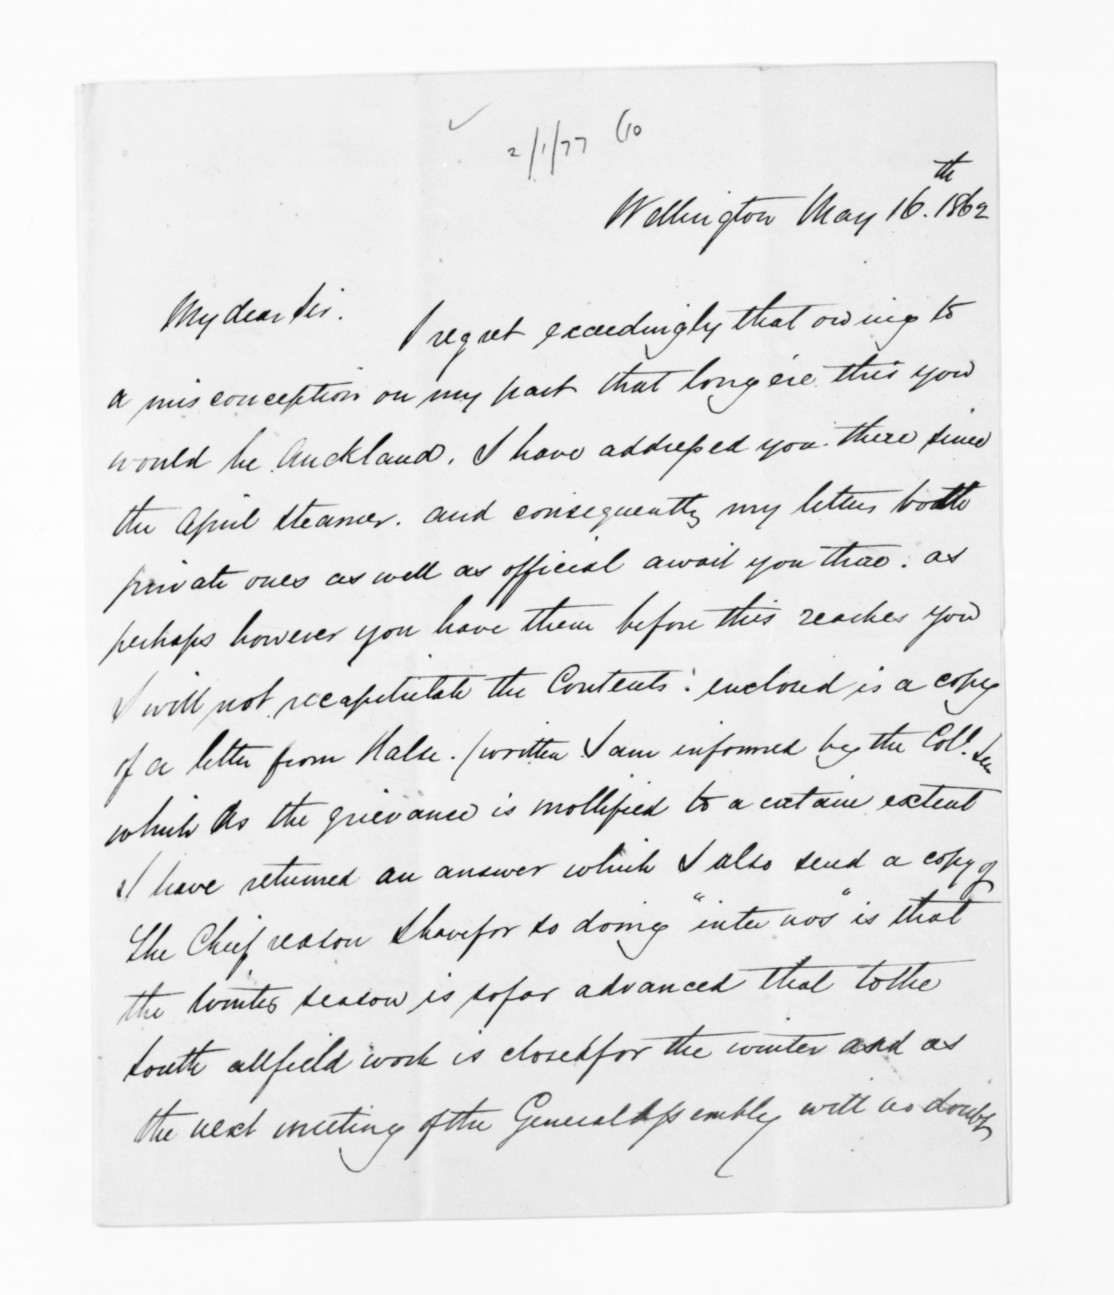 2/1/77 (10
Wellington May 16.th 1862
My dear Sir.
I regret exceedingly that owing to
a misconception on my part that long ere this you
would be Auckland. I have addressed you there since
the April steamer. and consequently my letters both
private ones as well as official await you there: as
perhaps however you have them before this reaches you
I will not recapitulate the Contents: enclosed is a copy
of a letter from Halse. (written I am informed by the Col.
which As the grievance is mollified to a certain extent
I have returned an answer which I also send a copy of
The Chief reason I have for so doing "inter nos" is that
the winter season is so far advanced that to the
South all field work is closed for the winter and as
the next meeting of the General Assembly will no doubt